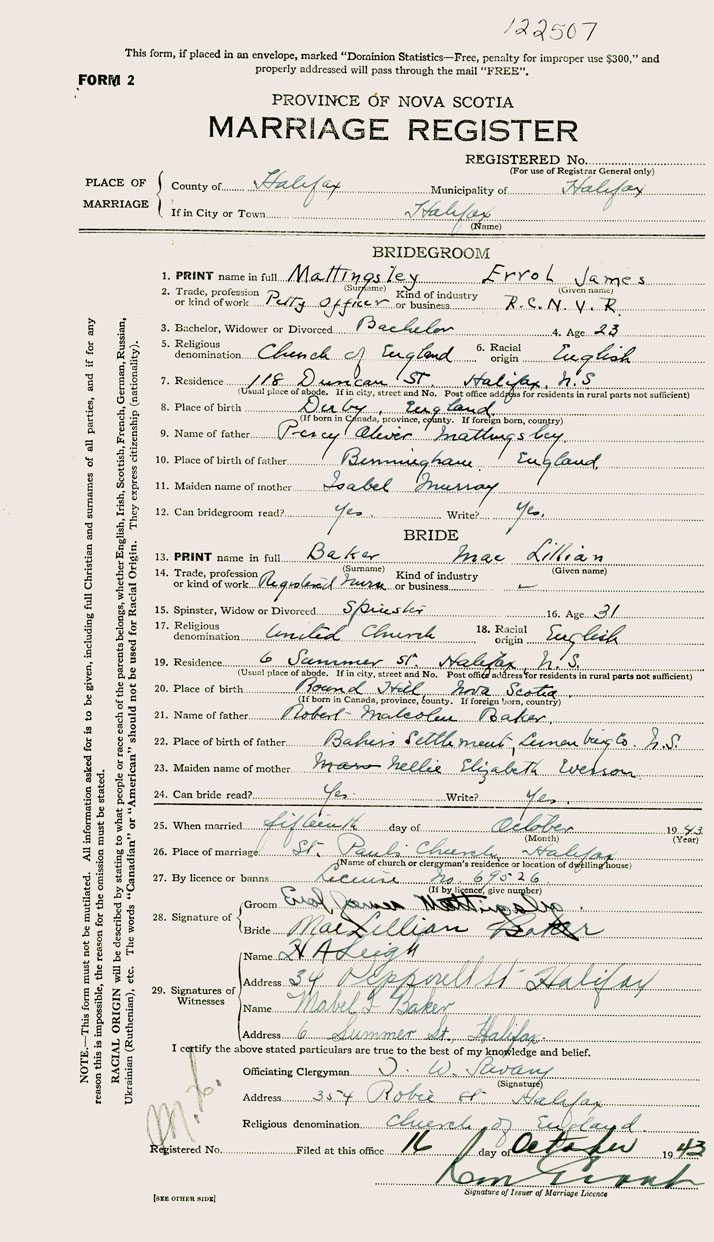 122507
This form, if placed in an envelope, marked “Dominion Statistics—Free, penalty for improper use $300,” and
properly addressed will pass through the mail “FREE”.
FORM 2
PROVINCE OF NOVA SCOTIA
MARRIAGE REGISTER
REGISTERED No.
(For use of Registrar General only)
PLACE OF MARRIAGE
County of Halifax Municipality of Halifax
If in City or Town Halifax
(Name)
BRIDEGROOM
1. PRINT name in full Mattingsley Errol James
(Surname) (Given name)
2. Trade, profession or kind of work Petty Officer Kind of industry or business R.C.N.V.R.
3. Bachelor, Widower or Divorced Bachelor 4. Age 23
5. Religious denomination Church of England 6. Racial origin English
7. Residence 118 Duncan St. Halifax, N.S
(Usual place of abode. If in city, street and No. Post office address for residents in rural parts not sufficient)
8. Place of birth Derby, England
(If born in Canada, province, county. If foreign born, country)
9. Name of father Percy Oliver Mattingsley
10. Place of birth of father Birmingham, England
11. Maiden name of mother Isabel Murray
12. Can bridegroom read? Yes. Write? Yes.
BRIDE
13. PRINT name in full Baker Mae Lillian
(Surname) (Given name)
14. Trade, profession or kind of work Registered Nurse Kind of industry or business —
15. Spinster, Widow or Divorced Spinster 16. Age 31
17. Religious denomination United Church 18. Racial origin English
19. Residence 6 Summer St. Halifax, N.S.
(Usual place of abode. If in city, street and No. Post office address for residents in rural parts not sufficient)
20. Place of birth Round Hill, Nova Scotia.
(If born in Canada, province, county. If foreign born, country)
21. Name of father Robert Malcolm Baker.
22. Place of birth of father Bakers Settlement, Lunenburg Co. N.S.
23. Maiden name of mother Nellie Elizabeth
24. Can bride read? Yes. Write? Yes.
25. When married fifteenth day of October 1943
(Month) (Year)
26. Place of marriage St. Paul's Church, Halifax
(Name of church or clergyman's residence or location of dwelling house)
27. By licence or banns License No. 69526
(If by licence, give number)
28. Signature of
Groom Errol James Mattingsley.
Bride Mae Lillian Baker
29. Signatures of Witnesses
Name H A Leigh
Address 34 Pepperell St Halifax
Name Mabel I Baker
Address 6 Summer St., Halifax.
I certify the above stated particulars are true to the best of my knowledge and belief.
Officiating Clergyman T. W. Savary
(Signature)
Address 354 Robie St Halifax
Religious denomination Church of England.
Registered No. Filed at this office 16 day of October 1943
Signature of Issuer of Marriage Licence
[SEE OTHER SIDE]
NOTE.—This form must not be mutilated. All information asked for is to be given, including full Christian and surnames of all parties, and if for any
reason this is impossible, the reason for the omission must be stated.
RACIAL ORIGIN will be described by stating to what people or race each of the parents belongs, whether English, Irish, Scottish, French, German, Russian,
Ukrainian (Ruthenian), etc. The words “Canadian” or “American” should not be used for Racial Origin. They express citizenship (nationality).